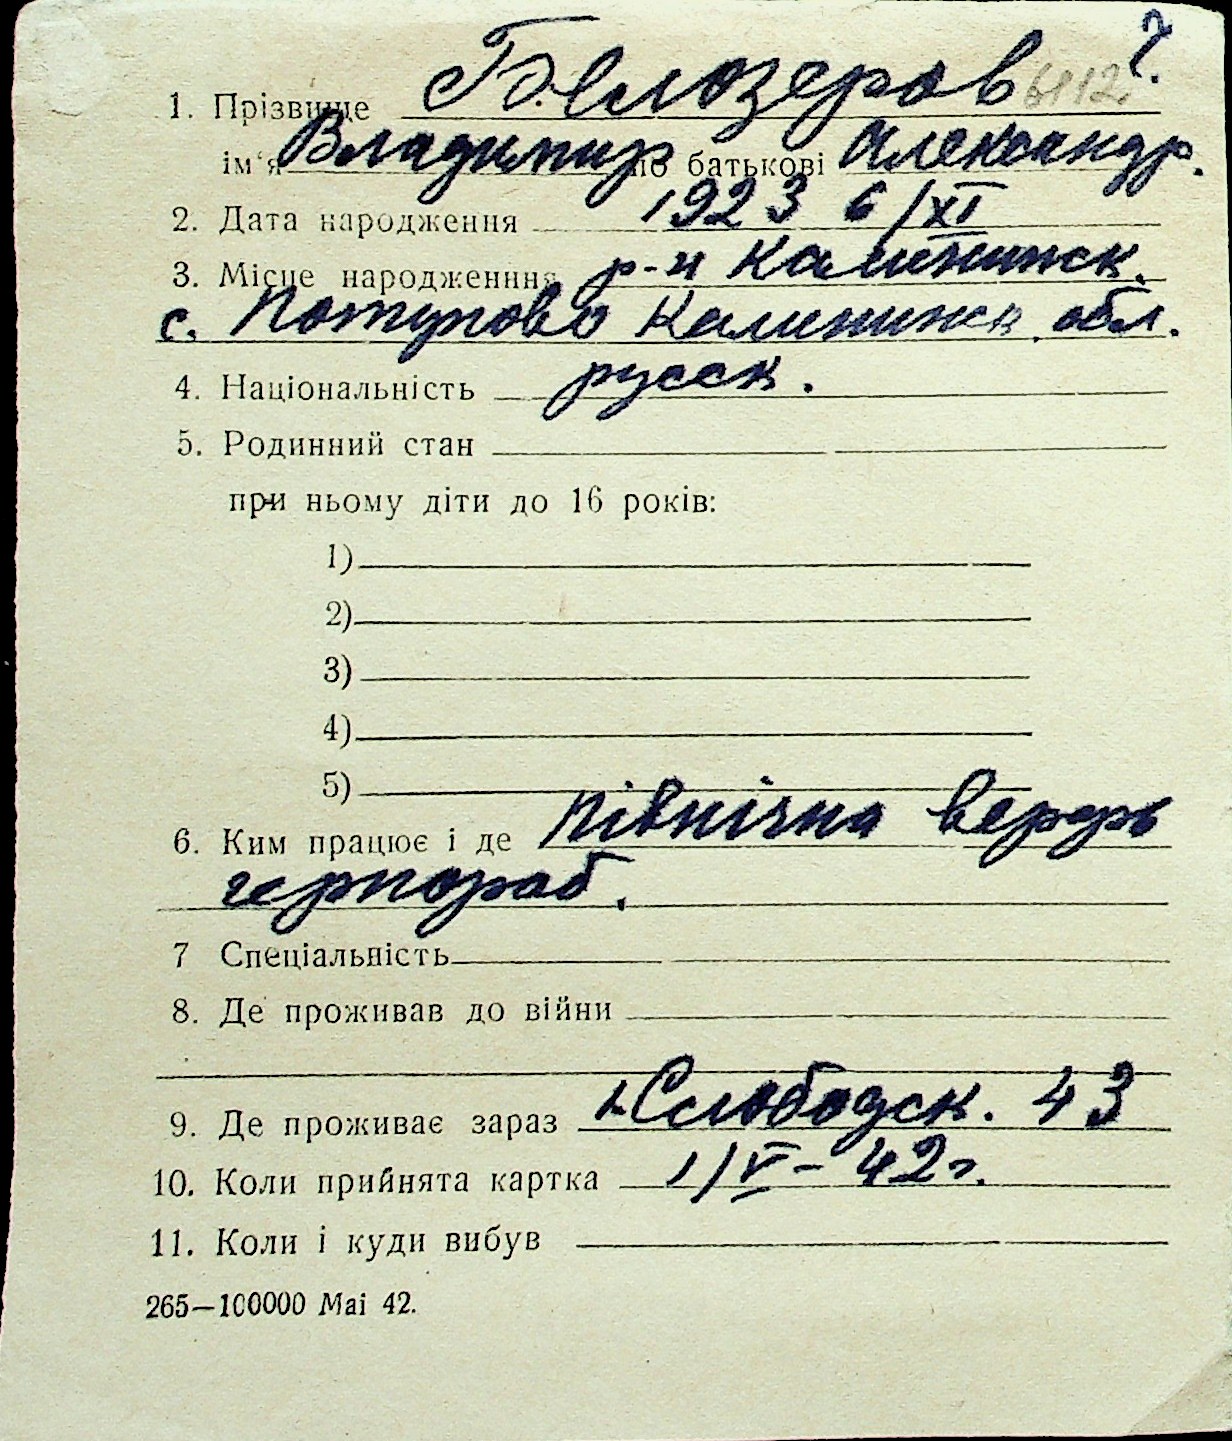 ч.
1. Прізвище Белозеров 6112
ім'я Владимир по батькові Александр.
2. Дата народження 1923 6/XI
3. Місце народженння р-н Калининск.
с. Потупово Калининск. обл.
4. Національність русск.
5. Родинний стан
при ньому діти до 16 років:
1)
2)
3)
4)
5)
6. Ким працює і де Північна верфь
чернораб.
7 Спеціальність
8. Де проживав до війни
9. Де проживає зараз Слободск. 43
10. Коли прийнята картка 1/V – 42 г.
11. Коли і куди вибув
265—100000 Mai 42.